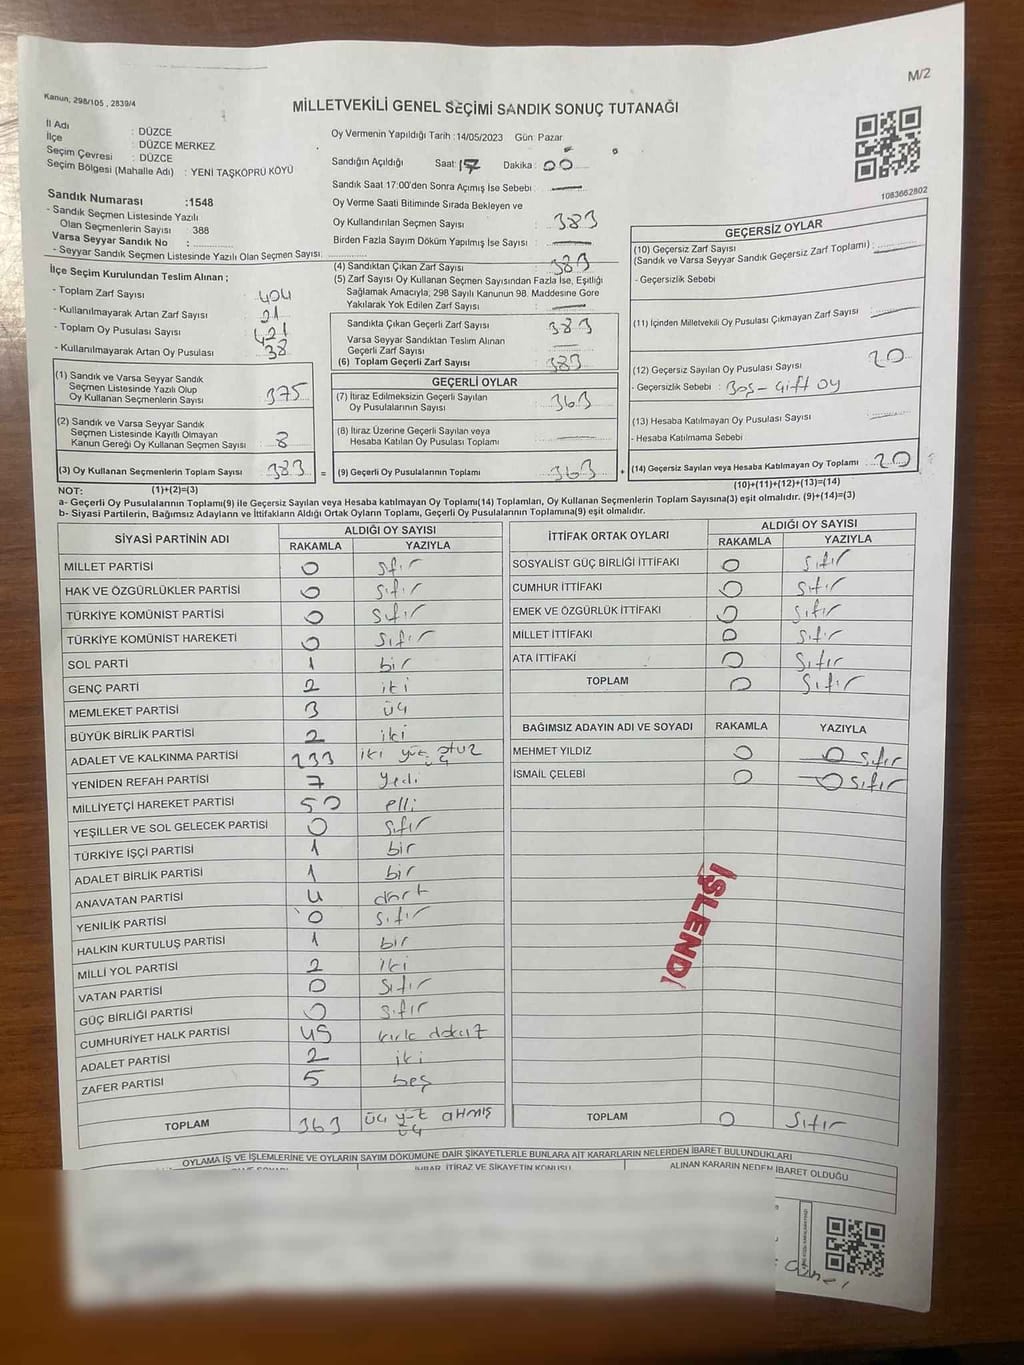 M/2
Kanun, 298/105 , 2839/4
MİLLETVEKİLİ GENEL SEÇİMİ SANDIK SONUÇ TUTANAĞI
İl Adı : DÜZCE
İlçe : DÜZCE MERKEZ
Seçim Çevresi : DÜZCE
Seçim Bölgesi (Mahalle Adı) : YENİ TAŞKÖPRÜ KÖYÜ
Oy Vermenin Yapıldığı Tarih :14/05/2023 Gün Pazar
Sandığın Açıldığı Saat: 17 Dakika : 00
Sandık Saat 17:00'den Sonra Açımış İse Sebebi :
Oy Verme Saati Bitiminde Sırada Bekleyen ve
Oy Kullandırılan Seçmen Sayısı : 383
Birden Fazla Sayım Döküm Yapılmış İse Sayısı :
1083662802
Sandık Numarası :1548
- Sandık Seçmen Listesinde Yazılı
Olan Seçmenlerin Sayısı : 388
Varsa Seyyar Sandık No :
- Seyyar Sandık Seçmen Listesinde Yazılı Olan Seçmen Sayısı :
İlçe Seçim Kurulundan Teslim Alınan ;
- Toplam Zarf Sayısı : 404
- Kullanılmayarak Artan Zarf Sayısı : 21
- Toplam Oy Pusulası Sayısı : 421
- Kullanılmayarak Artan Oy Pusulası : 38
(1) Sandık ve Varsa Seyyar Sandık
Seçmen Listesinde Yazılı Olup
Oy Kullanan Seçmenlerin Sayısı : 375
(2) Sandık ve Varsa Seyyar Sandık
Seçmen Listesinde Kayıtlı Olmayan
Kanun Gereği Oy Kullanan Seçmen Sayısı : 8
(3) Oy Kullanan Seçmenlerin Toplam Sayısı : 383 =
(4) Sandıktan Çıkan Zarf Sayısı : 383
(5) Zarf Sayısı Oy Kullanan Seçmen Sayısından Fazla İse, Eşitliği
Sağlamak Amacıyla; 298 Sayılı Kanunun 98. Maddesine Göre
Yakılarak Yok Edilen Zarf Sayısı :
Sandıkta Çıkan Geçerli Zarf Sayısı : 383
Varsa Seyyar Sandıktan Teslim Alınan
Geçerli Zarf Sayısı :
(6) Toplam Geçerli Zarf Sayısı : 383
GEÇERLİ OYLAR
(7) İtiraz Edilmeksizin Geçerli Sayılan
Oy Pusulalarının Sayısı : 363
(8) İtiraz Üzerine Geçerli Sayılan veya
Hesaba Katılan Oy Pusulası Toplamı :
(9) Geçerli Oy Pusulalarının Toplamı : 363 +
GEÇERSİZ OYLAR
(10) Geçersiz Zarf Sayısı
(Sandık ve Varsa Seyyar Sandık Geçersiz Zarf Toplamı) :
- Geçersizlik Sebebi
(11) İçinden Milletvekili Oy Pusulası Çıkmayan Zarf Sayısı :
(12) Geçersiz Sayılan Oy Pusulası Sayısı : 20
- Geçersizlik Sebebi : Boş - Çift oy
(13) Hesaba Katılmayan Oy Pusulası Sayısı :
- Hesaba Katılmama Sebebi
(14) Geçersiz Sayılan veya Hesaba Katılmayan Oy Toplamı : 20
NOT: (1)+(2)=(3) (10)+(11)+(12)+(13)=(14)
a- Geçerli Oy Pusulalarının Toplamı(9) ile Geçersiz Sayılan veya Hesaba katılmayan Oy Toplamı(14) Toplamları, Oy Kullanan Seçmenlerin Toplam Sayısına(3) eşit olmalıdır. (9)+(14)=(3)
b- Siyasi Partilerin, Bağımsız Adayların ve İttifakların Aldığı Ortak Oyların Toplamı, Geçerli Oy Pusulalarının Toplamına(9) eşit olmalıdır.
SİYASİ PARTİNİN ADI ALDIĞI OY SAYISI
RAKAMLA YAZIYLA
MİLLET PARTİSİ 0 sıfır
HAK VE ÖZGÜRLÜKLER PARTİSİ 0 sıfır
TÜRKİYE KOMÜNİST PARTİSİ 0 sıfır
TÜRKİYE KOMÜNİST HAREKETİ 0 sıfır
SOL PARTİ 1 bir
GENÇ PARTİ 2 iki
MEMLEKET PARTİSİ 3 üç
BÜYÜK BİRLİK PARTİSİ 2 iki
ADALET VE KALKINMA PARTİSİ 233 iki yüz otuz üç
YENİDEN REFAH PARTİSİ 7 yedi
MİLLİYETÇİ HAREKET PARTİSİ 50 elli
YEŞİLLER VE SOL GELECEK PARTİSİ 0 sıfır
TÜRKİYE İŞÇİ PARTİSİ 1 bir
ADALET BİRLİK PARTİSİ 1 bir
ANAVATAN PARTİSİ 4 dört
YENİLİK PARTİSİ 0 sıfır
HALKIN KURTULUŞ PARTİSİ 1 bir
MİLLİ YOL PARTİSİ 2 iki
VATAN PARTİSİ 0 sıfır
GÜÇ BİRLİĞİ PARTİSİ 0 sıfır
CUMHURİYET HALK PARTİSİ 49 kırk dokuz
ADALET PARTİSİ 2 iki
ZAFER PARTİSİ 5 beş
TOPLAM 363 üç yüz altmış üç
İTTİFAK ORTAK OYLARI ALDIĞI OY SAYISI
RAKAMLA YAZIYLA
SOSYALİST GÜÇ BİRLİĞİ İTTİFAKI 0 sıfır
CUMHUR İTTİFAKI 0 sıfır
EMEK VE ÖZGÜRLÜK İTTİFAKI 0 sıfır
MİLLET İTTİFAKI 0 sıfır
ATA İTTİFAKI 0 sıfır
TOPLAM 0 sıfır
BAĞIMSIZ ADAYIN ADI VE SOYADI RAKAMLA YAZIYLA
MEHMET YILDIZ 0 0 sıfır
İSMAİL ÇELEBİ 0 0 sıfır
İŞLENDİ
TOPLAM 0 sıfır
OYLAMA İŞ VE İŞLEMLERİNE VE OYLARIN SAYIM DÖKÜMÜNE DAİR ŞİKAYETLERLE BUNLARA AİT KARARLARIN NELERDEN İBARET BULUNDUKLARI
İHBAR, İTİRAZ VE ŞİKAYETİN KONUSU ALINAN KARARIN NEDEN İBARET OLDUĞU